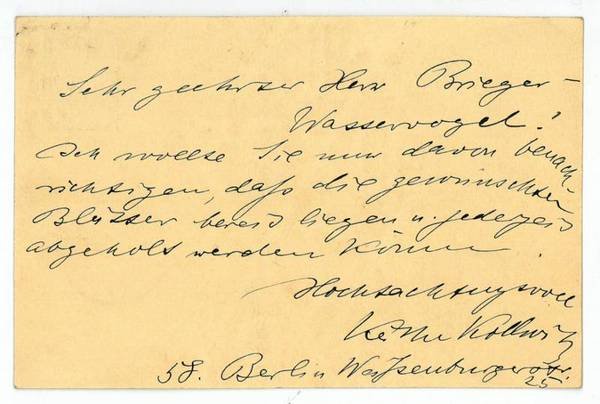 Sehr geehrter Herr Brieger-
Wasservogel!
Ich wollte Sie nur davon benach-
richtigen, daß die gewünschten
Blätter bereit liegen u. jederzeit
abgeholt werden können.
Hochachtungsvoll
Käthe Kollwitz
58. Berlin Weißenburgerstr.
25